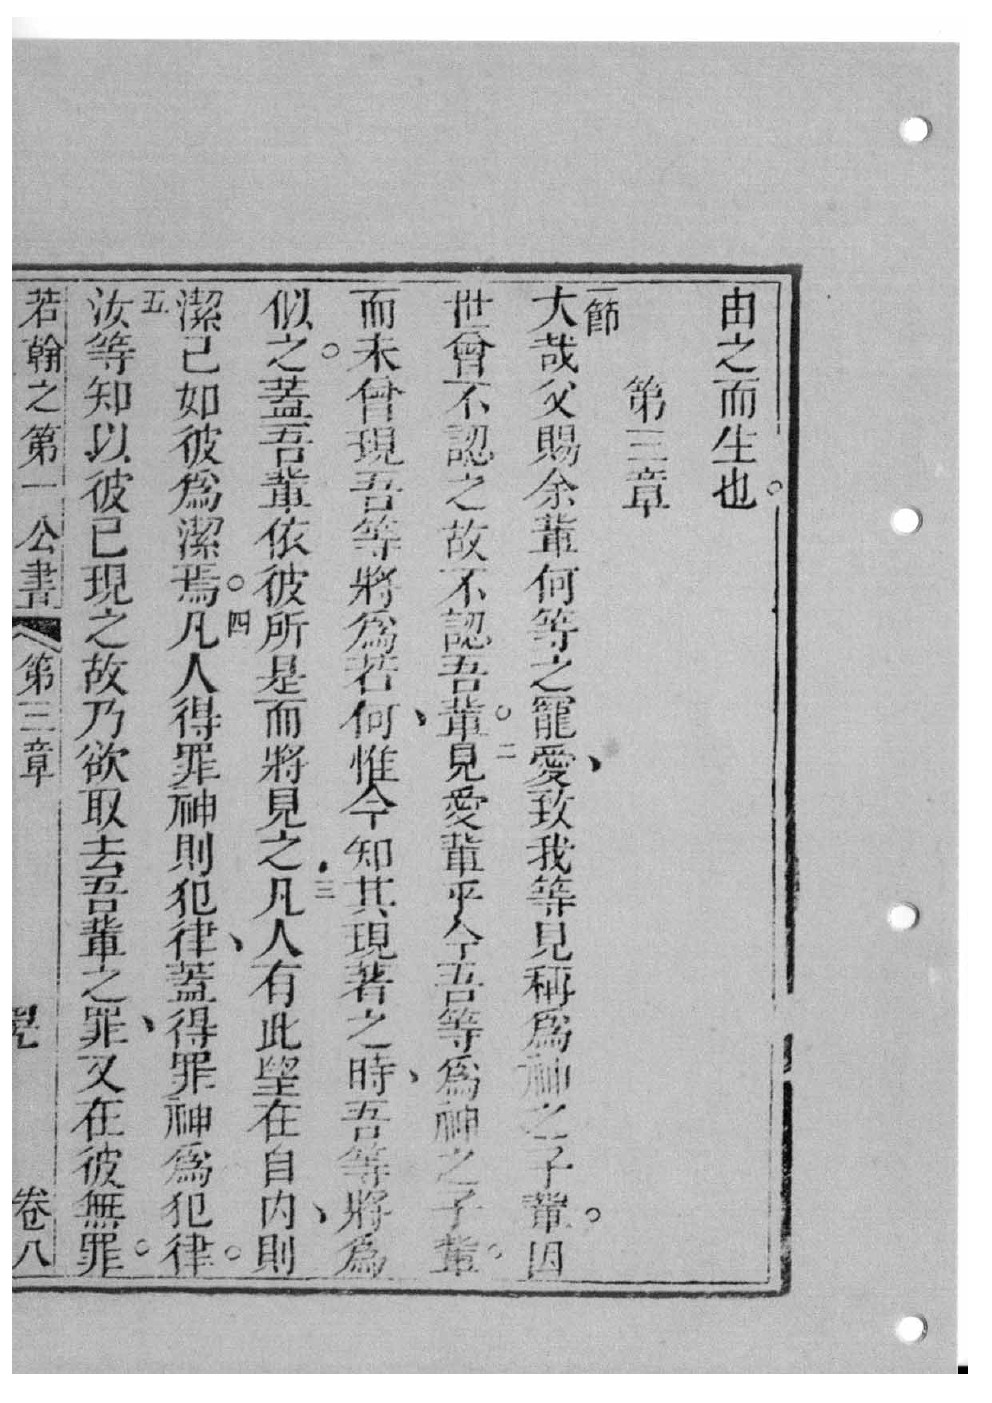 由之而生也。
第三章
一節大哉父賜余輩何等之寵愛、致我等見稱為神之子輩。因
世曾不認之故不認吾輩。二見愛輩乎今吾等為神之子輩。
而未曾現吾等將為若何、惟今知其現著之時、吾等將為
似之。蓋吾輩依彼所是而將見之、三凡人有此望在自內、則
潔己如彼為潔焉。四凡人得罪神則犯律、蓋得罪神為犯律。
五汝等知以彼已現之故乃欲取去吾輩之罪、又在彼無罪。
若翰之第一公書 第三章 卷八